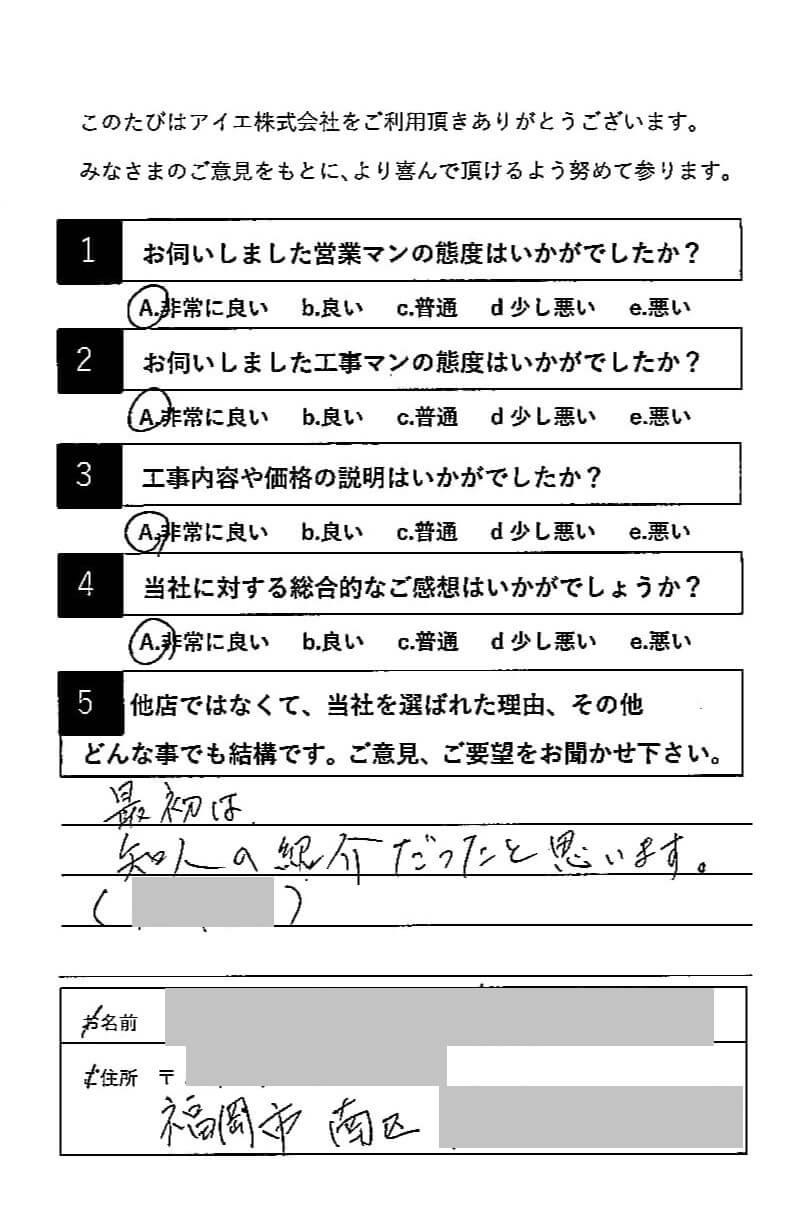 このたびはアイエ株式会社をご利用頂きありがとうございます。
みなさまのご意見をもとに、より喜んで頂けるよう努めて参ります。
1 お伺いしました営業マンの態度はいかがでしたか？
A.非常に良い b.良い c.普通 d 少し悪い e.悪い
2 お伺いしました工事マンの態度はいかがでしたか？
A.非常に良い b.良い c.普通 d 少し悪い e.悪い
3 工事内容や価格の説明はいかがでしたか？
A.非常に良い b.良い c.普通 d 少し悪い e.悪い
4 当社に対する総合的なご感想はいかがでしょうか？
A.非常に良い b.良い c.普通 d 少し悪い e.悪い
5 他店ではなくて、当社を選ばれた理由、その他
どんな事でも結構です。ご意見、ご要望をお聞かせ下さい。
最初は
知人の紹介だったと思います。
( )
お名前
ご住所 〒
福岡市 南区